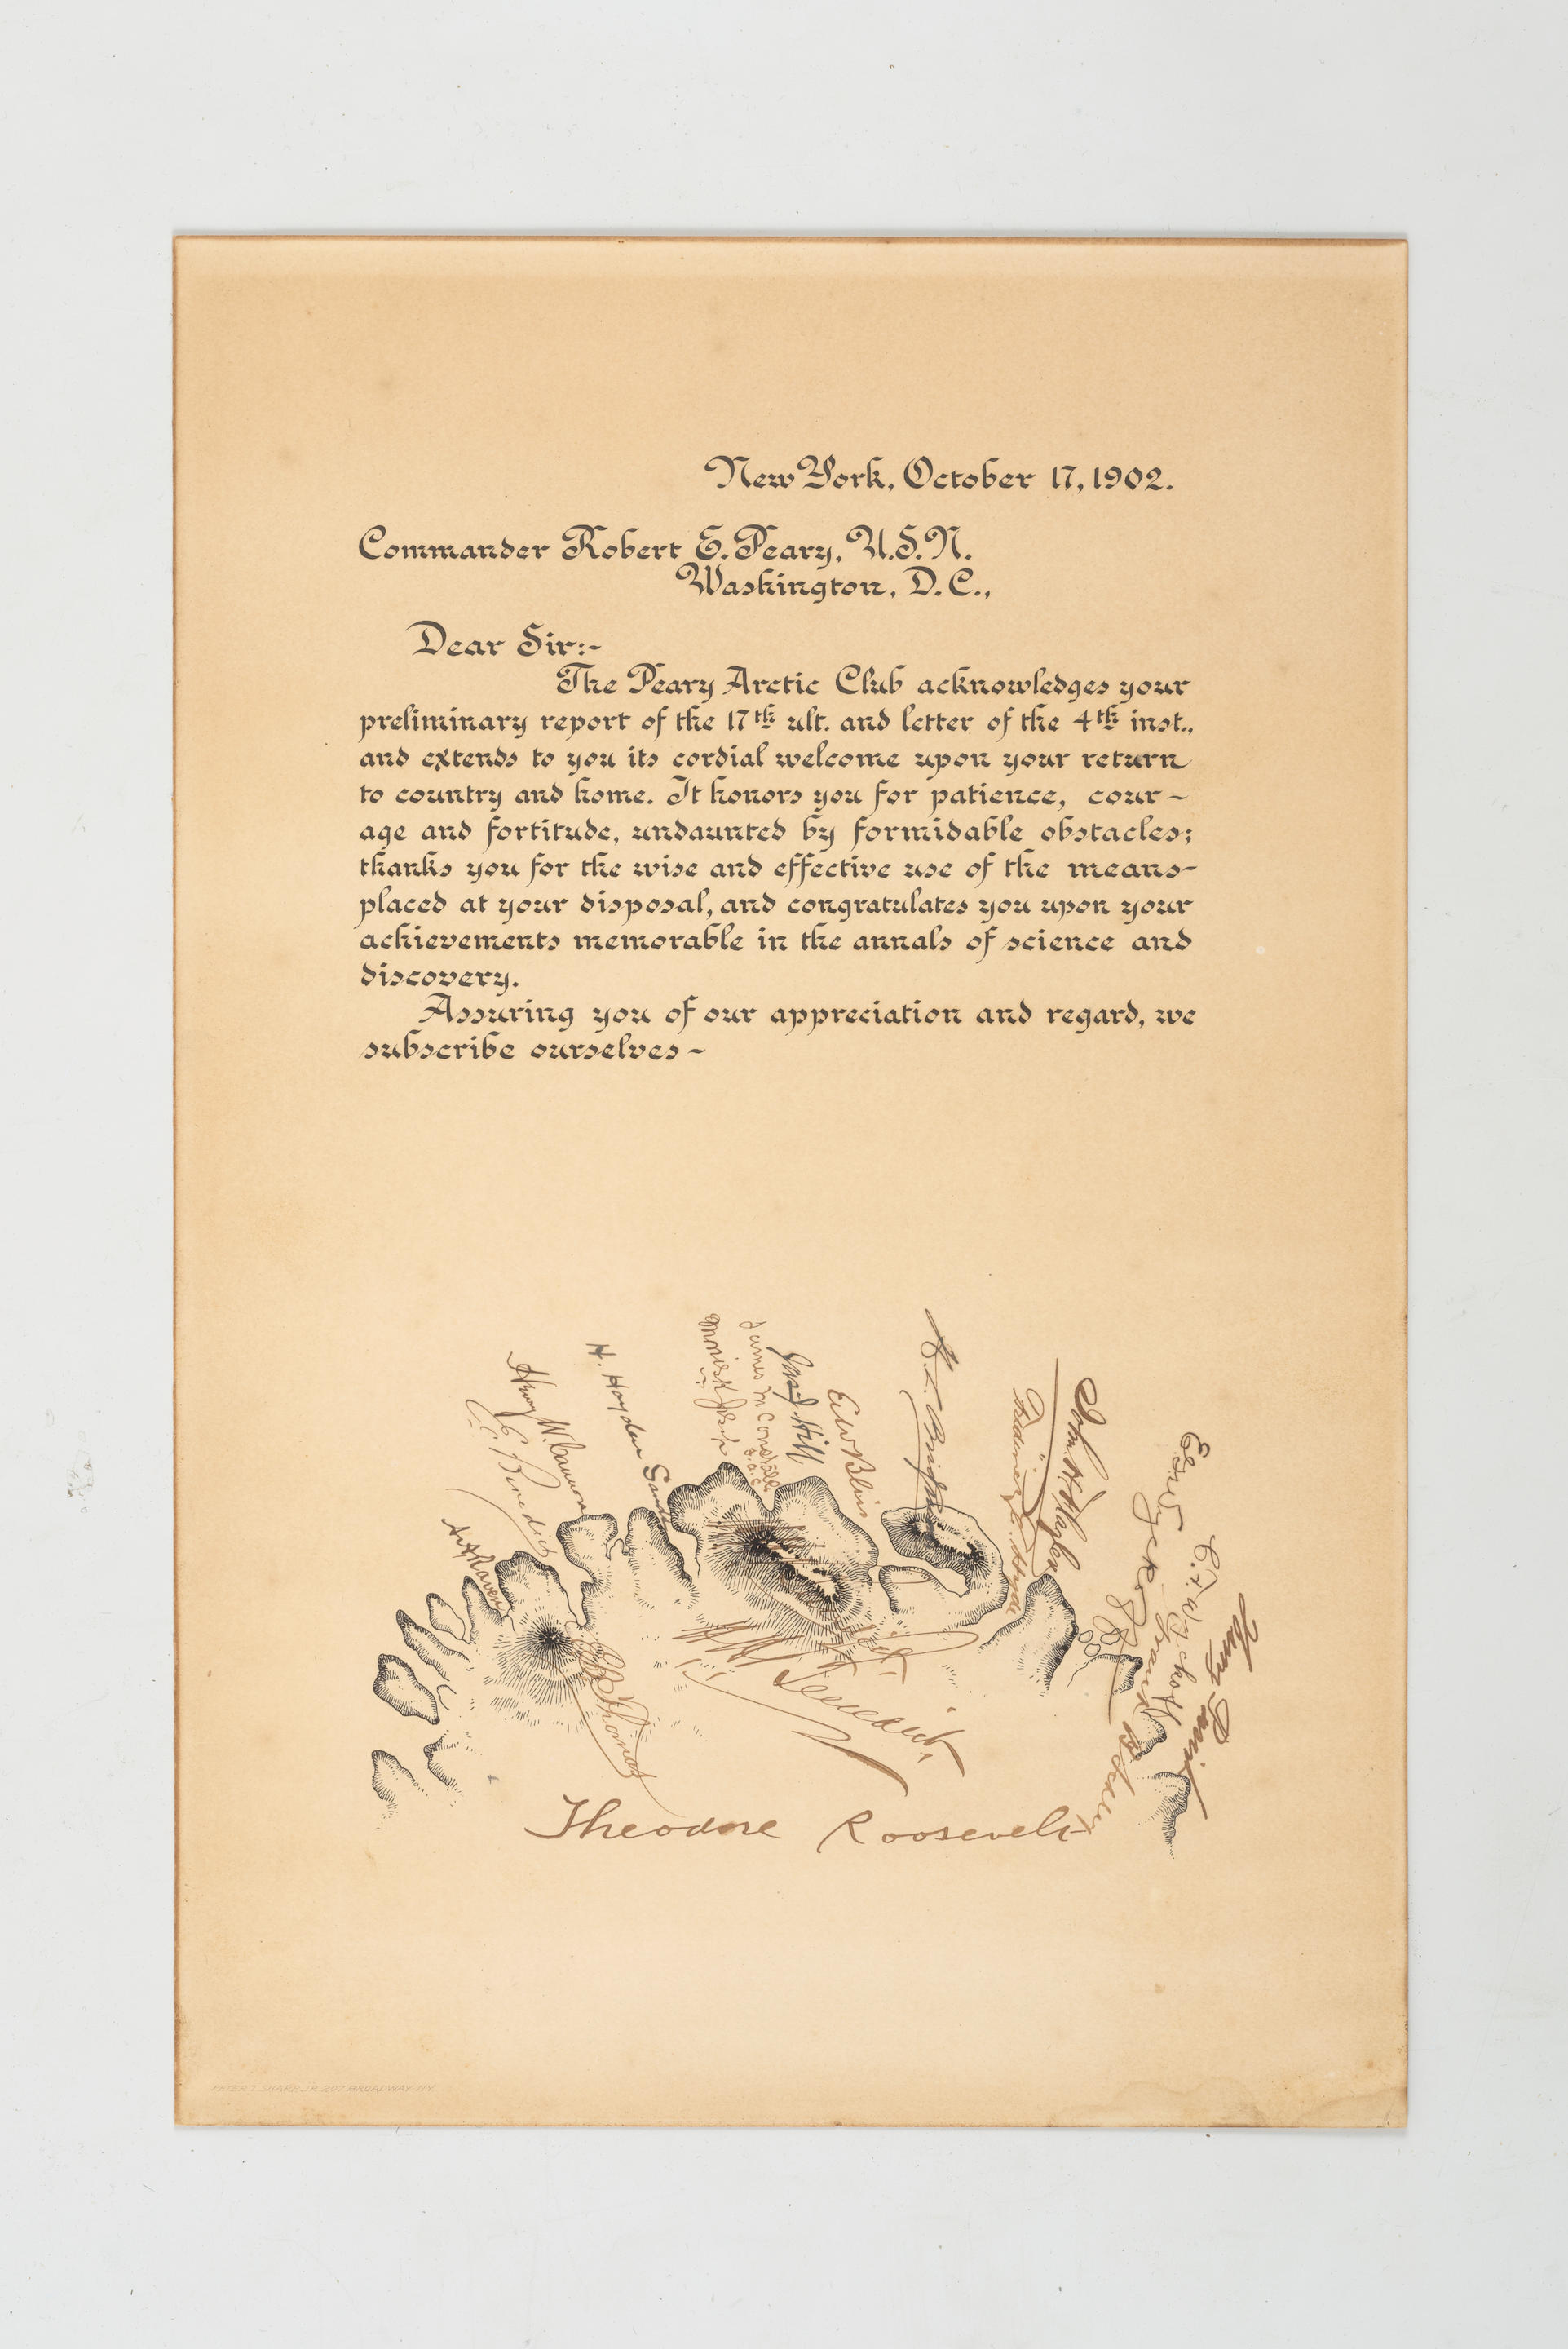 New York, October 17, 1902.
Commander Robert E. Peary, U.S.N.
Washington, D.C.,
Dear Sir:-
The Peary Arctic Club acknowledges your
preliminary report of the 17th ult. and letter of the 4th inst.,
and extends to you its cordial welcome upon your return
to country and home. It honors you for patience, cour-
age and fortitude, undaunted by formidable obstacles;
thanks you for the wise and effective use of the means-
placed at your disposal, and congratulates you upon your
achievements memorable in the annals of science and
discovery.
Assuring you of our appreciation and regard, we
subscribe ourselves-
A A Raven
E C Benedict
Henry W. Cannon
H. Hayden Sands
Morris K. Jesup
James M Constable
Jas. J. Hill
E W Bliss
H. L. Bridgman
Frederick E. Hyde
John H. Flagler
Grant B Schley
C. F. Wyckoff
Henry Parish
E B Thomas
Theodore Roosevelt
PETER T. SHARP, JR. 207 BROADWAY. NY